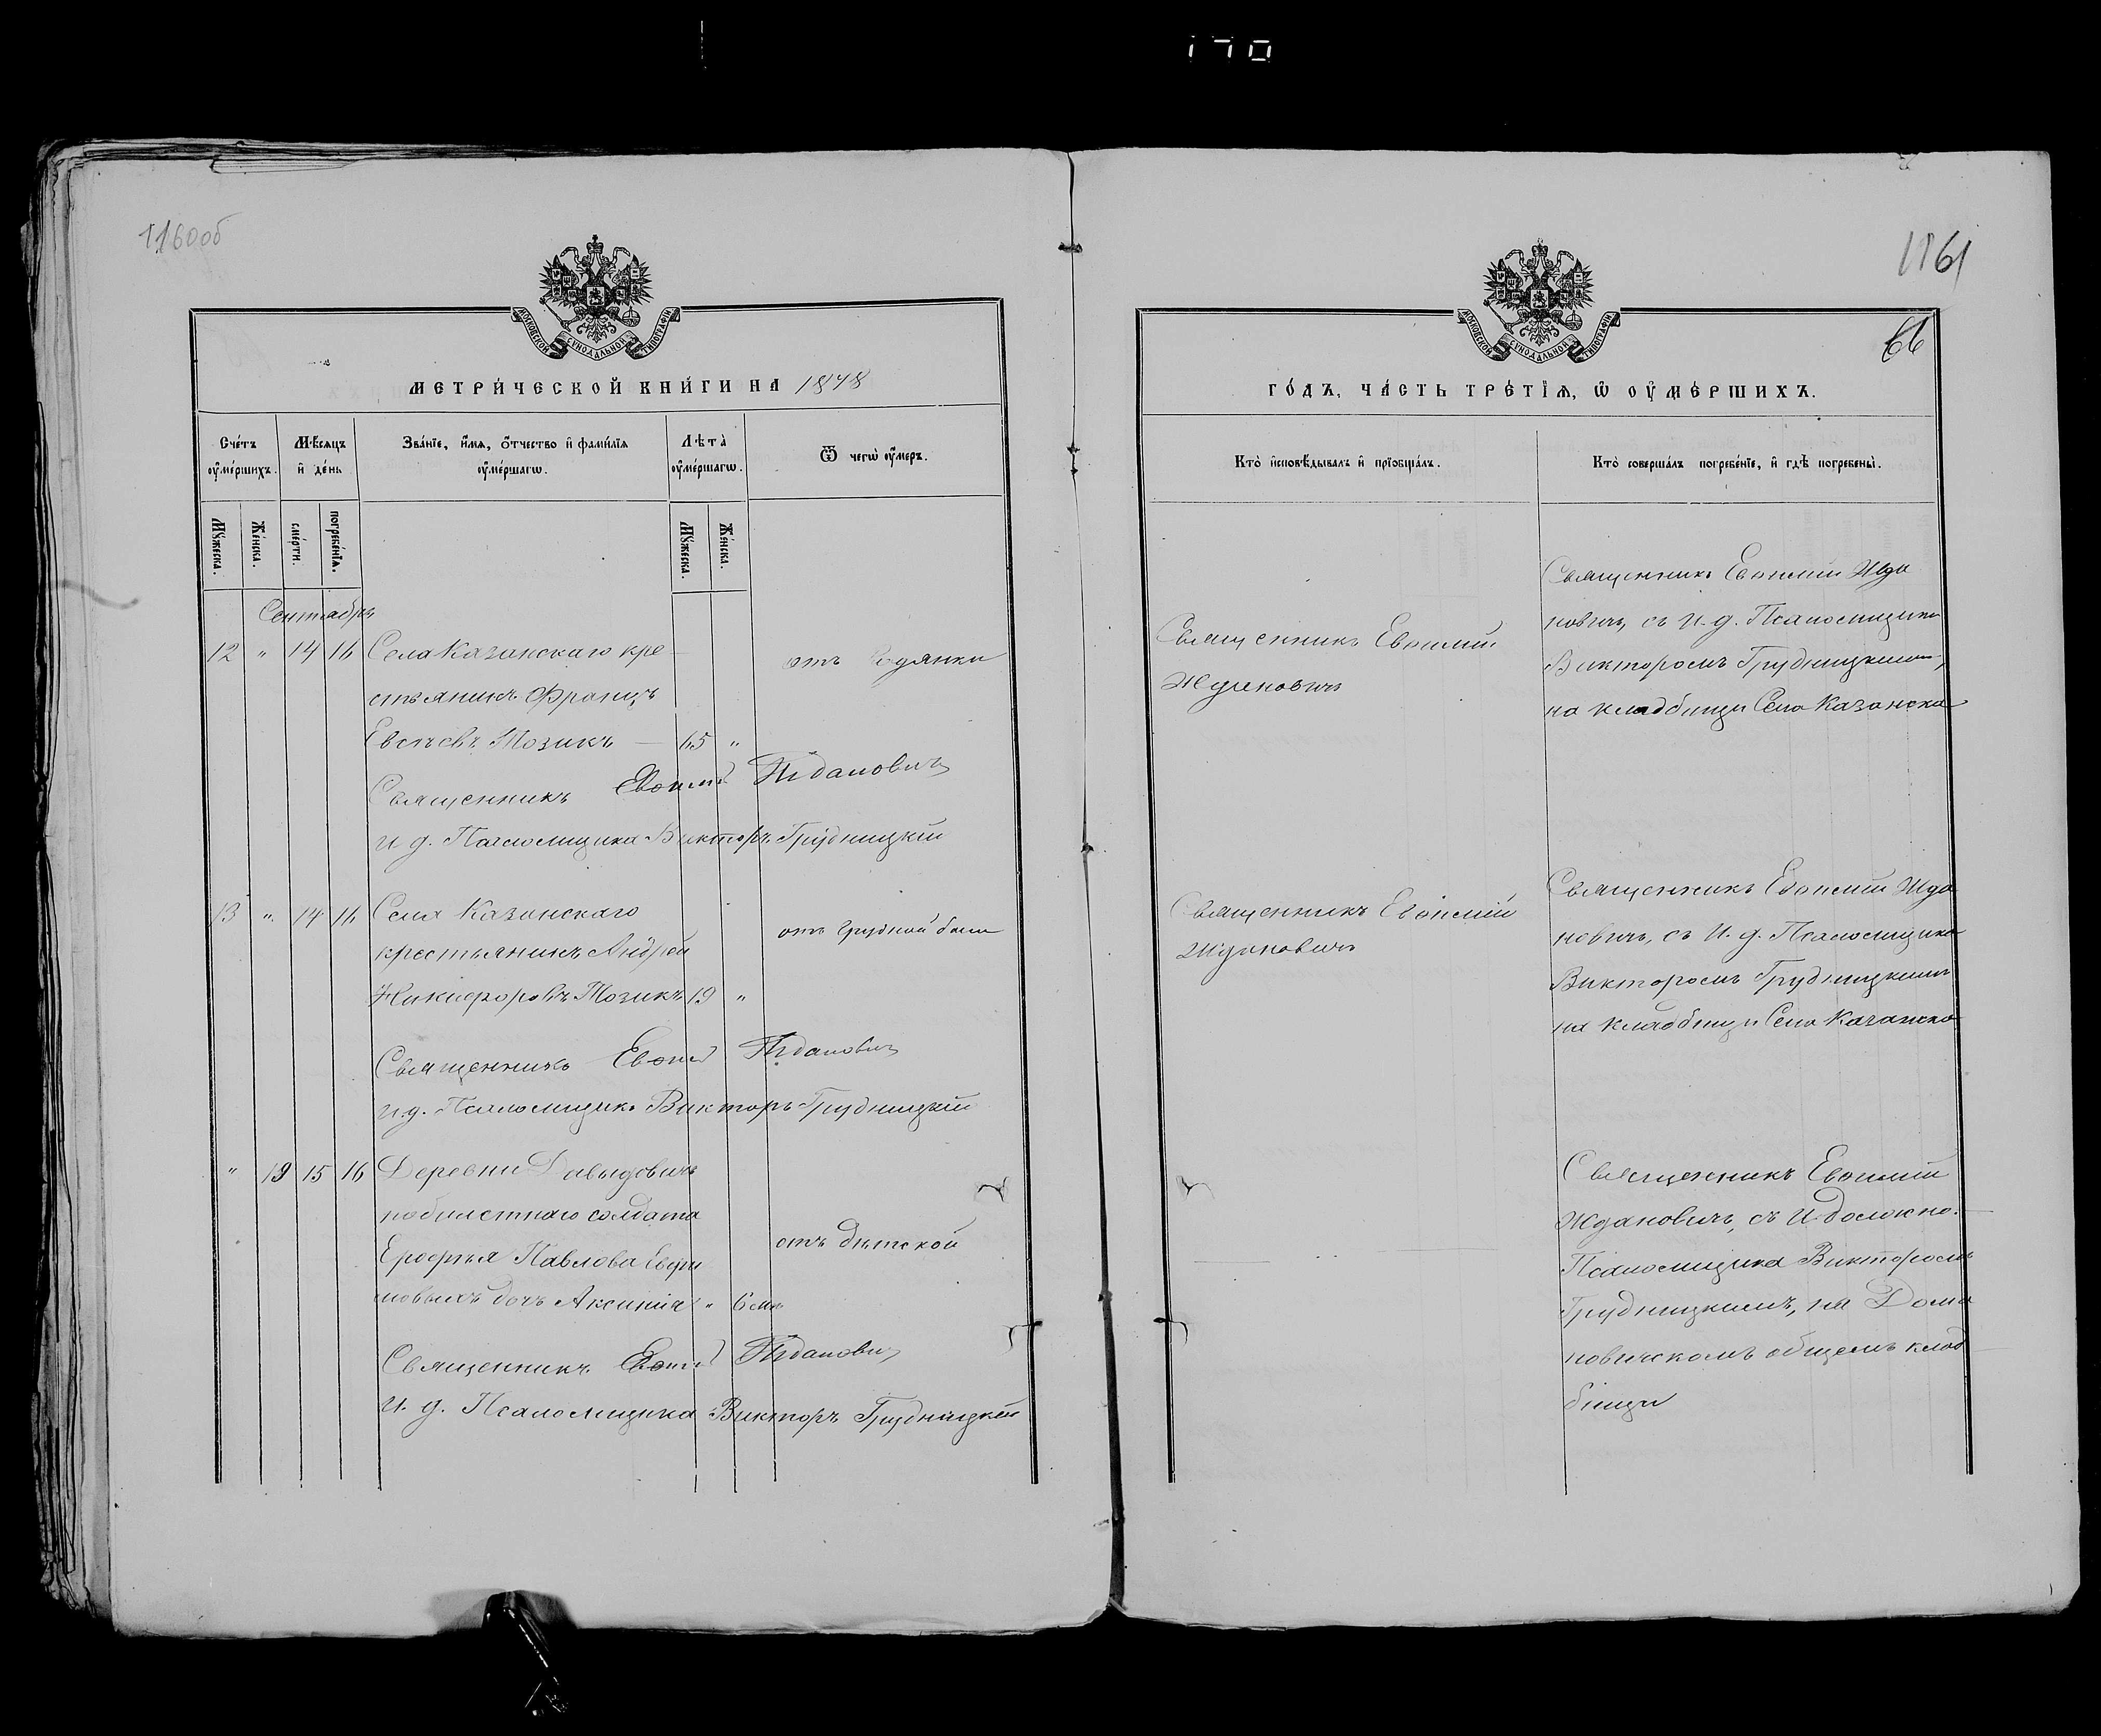 170
1160об
МОСКОВСКОЙ СѴНОДАЛЬНОЙ ТИПОГРАФІИ
МЕТРИ́ЧЕСКОЙ КНИ́ГИ НА 1878
Сче́тъ оу҆ме́ршихъ.
Мѣ́сяцъ и҆ де́нь
Зва́нїе, и҆́мѧ, ѻ҆́тчество и҆ фами́лїѧ оу҆ме́ршагѡ.
Лѣ́та оу҆ме́ршагѡ.
Ѿ чегѡ̀ оу҆́меръ.
Мꙋ́жеска.
Же́нска.
сме́рти.
погребе́нїѧ.
Мꙋ́жеска.
Же́нска.
Сентябрь
12 " 14 16 Села Казанскаго кре
стьянинъ Францъ
Тозикъ — 65 "
отъ
Священникъ Евфимій Ждановичъ
и д. Псаломщика Викторъ Грудницкій
13 " 14 16 Села Казанскаго
крестьянинъ Андрей
Никифоровъ Тозикъ 19 "
отъ грудной боли
Священникъ Евфимій Ждановичъ
и. д. Псаломщика Викторъ Грудницкій
" 13 15 16 Деревни Давыдовичъ
побилетнаго солдата
Ерофея Павлова
дочь Аксинія " 6 мѣ
отъ дѣтской
Священникъ Евфимій Ждановичъ
И. д. Псаломщика Викторъ Грудницкій
1161
66
МОСКОВСКОЙ СѴНОДАЛЬНОЙ ТИПОГРАФІИ
ГО́ДЪ, ЧА́СТЬ ТРЕ́ТЇѦ, Ѡ҆ ОУ҆МЕ́РШИХЪ.
Кто̀ и҆сповѣ́дывалъ и҆ прїѡбща́лъ.
Кто̀ соверша́лъ погребе́нїе, и҆ гдѣ̀ погребены̀.
Священникъ Евфимій
Ждановичъ
Священникъ Евфимій Жда
новичъ, съ И. д. Псаломщика
Викторомъ Грудницкимъ,
на кладбищи Села Казанска
Священникъ Евфимій
Ждановичъ
Священникъ Евфимій Жда
новичъ, съ И. д. Псаломщика
Викторомъ Грудницкимъ
на кладбищи Села Казанска
Священникъ Евфимій
Ждановичъ, съ И должно.
Псаломщика Викторомъ
Грудницкимъ, на Дома
новичскомъ общемъ клад
бищи